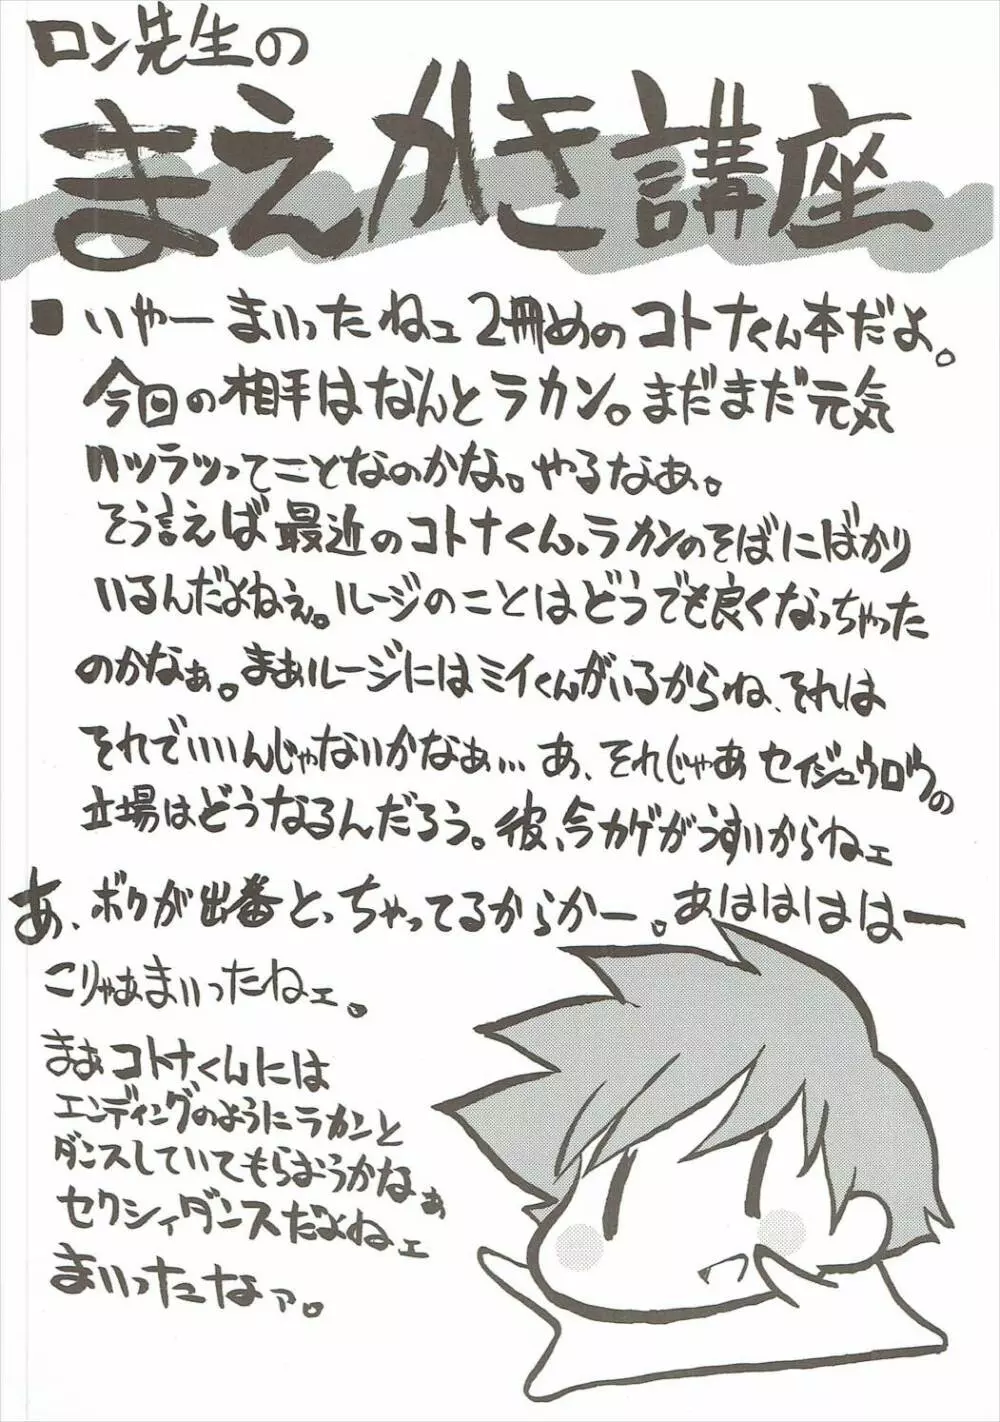 ロン先生の
まえがき講座
■いやーまいったねェ2冊めのコトナくん本だよ。
今回の相手はなんとラカン。まだまだ元気
ハツラツってことなのかな。やるなぁ。
そう言えば最近のコトナくん、ラカンのそばにばかり
いるんだよねぇ。ルージのことはどうでも良くなっちゃった
のかなぁ。まぁルージにはミイくんがいるからね、それは
それでいいんじゃないかなぁ… あ、それじゃあセイジュウロウの
立場はどうなるんだろう。彼、今カゲがうすいからねェ
あ、ボクが出番とっちゃってるからかー。あはははは―
こりゃぁまいったねェ。
まぁコトナくんには
エンディングのようにラカンと
ダンスしていてもらおうかなぁ
セクシィダンスだよねェ
まいったなァ。